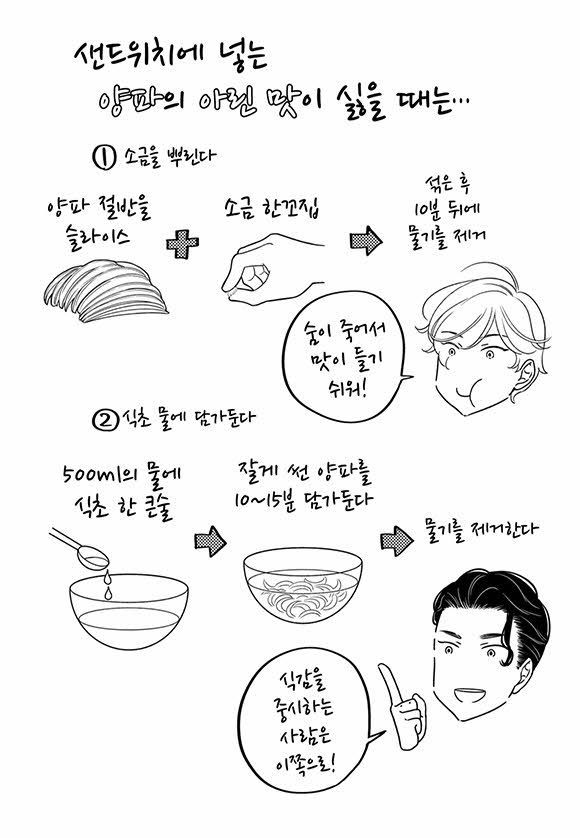 샌드위치에 넣는
양파의 아린 맛이 싫을 때는…
① 소금을 뿌린다
양파 절반을
슬라이스
소금 한꼬집
섞은 후
10분 뒤에
물기를 제거
숨이 죽어서
맛이 들기
쉬워!
② 식초 물에 담가둔다
500ml의 물에
식초 한 큰술
잘게 썬 양파를
10~15분 담가둔다
물기를 제거한다
식감을
중시하는
사람은
이쪽으로!